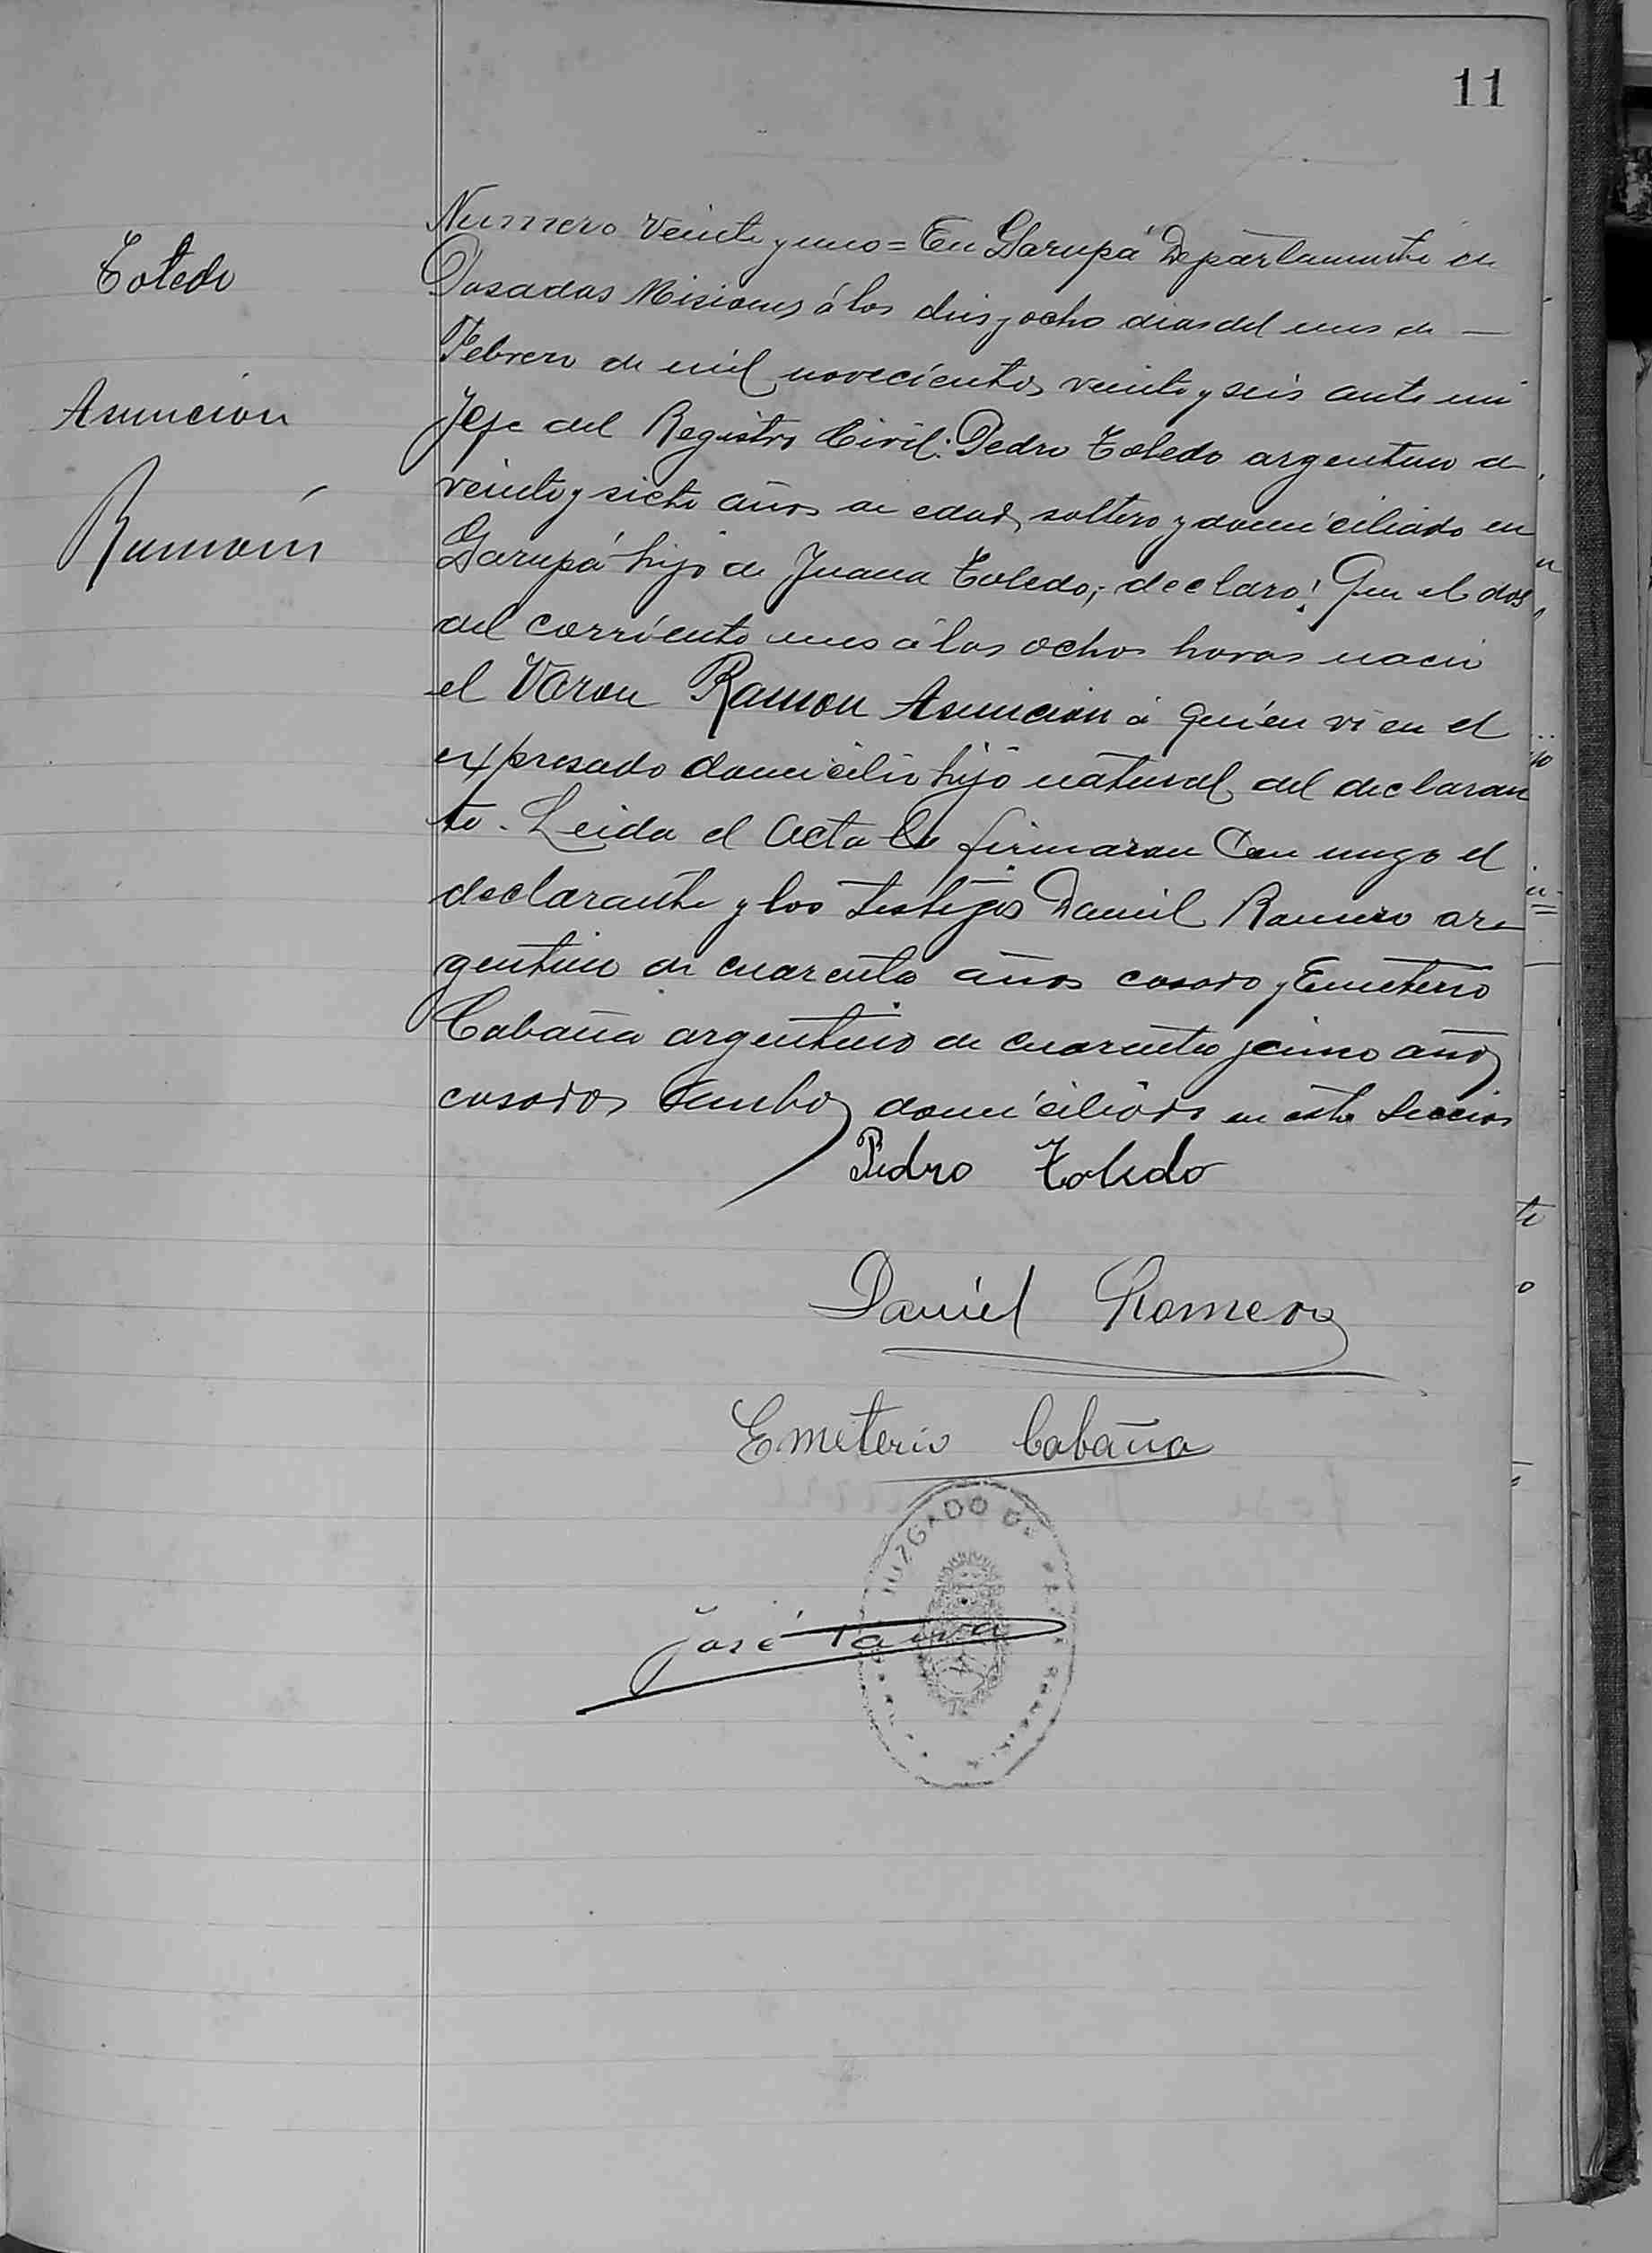 11
Toledo
Asuncion
Ramón
Numero veinte y uno = En Garupá Departamento de
Posadas Misiones á los dies y ocho dias del mes de —
Febrero de mil novecientos veinte y seis ante mi
Jefe del Registro Civil: Pedro Toledo argentino de
veinte y siete años de edad, soltero y domiciliado en
Garupá hijo de Juana Toledo; declaro: Que el dos
del corriente mes á las ochos horas nació
el Varon Ramon Asuncion á quien vi en el
expresado domicilio hijo natural del declaran
te. Leida el Acta la firmaron Con migo el
declarante y los testigos Daniel Romero ar-
gentino de cuarenta años casado y Emeterio
Cabaña argentino de cuarenta y cinco años
casados ambos domiciliados en esta Seccion
Pedro Toledo
Daniel Romero
Emeterio Cabaña
JUZGADO DE
José Paiva